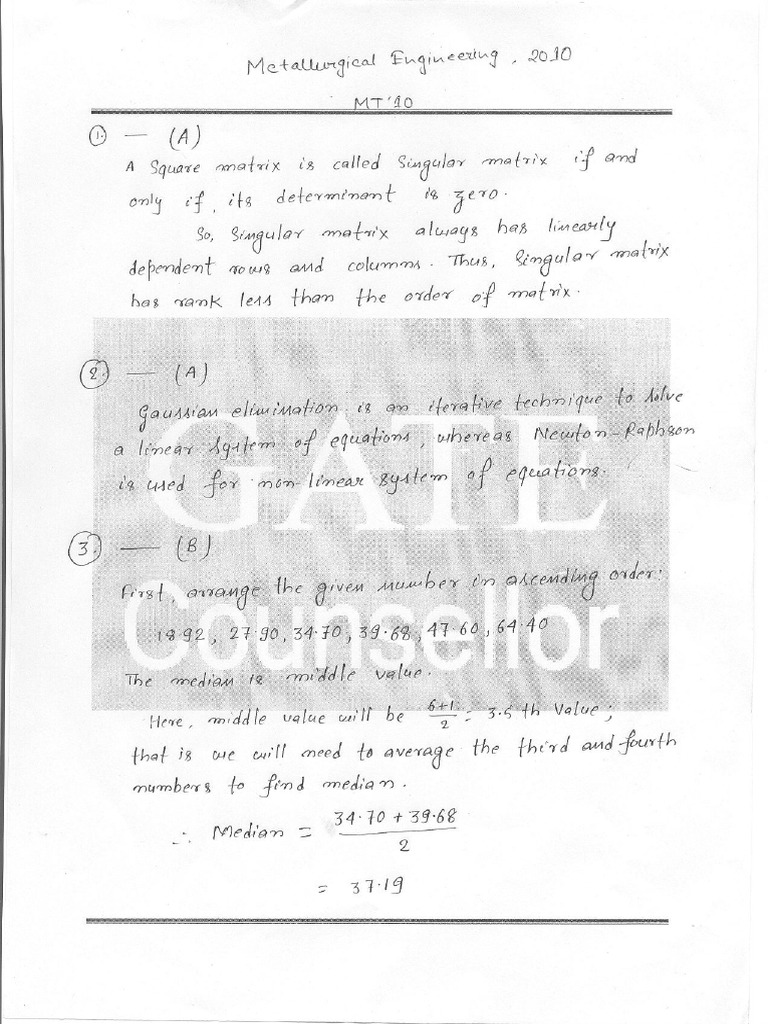 Metallurgical Engineering, 2010
MT'10
1. — (A)
A Square matrix is called Singular matrix if and
only if, its determinant is zero.
So, Singular matrix always has linearly
dependent rows and columns. Thus, Singular matrix
has rank less than the order of matrix.
2. — (A)
Gaussian elimination is an iterative technique to solve
a linear system of equations, whereas Newton-Raphson
is used for non-linear system of equations.
GATE
3. — (B)
First, arrange the given number in ascending order:
18.92, 27.90, 34.70, 39.68, 47.60, 64.40
Counsellor
The median is middle value.
Here, middle value will be 6+1/2 = 3.5 th Value;
that is we will need to average the third and fourth
numbers to find median.
∴ Median = 34.70 + 39.68 / 2
= 37.19